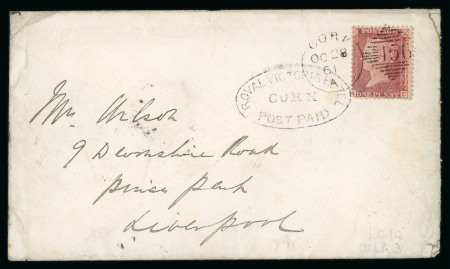 CORK
156
OC 28
61
POSTAGE
ONE PENNY
ROYAL VICTORIA
CORK
POST PAID
Mr Wilson
9 Devonshire Road
Princes Park
Liverpool